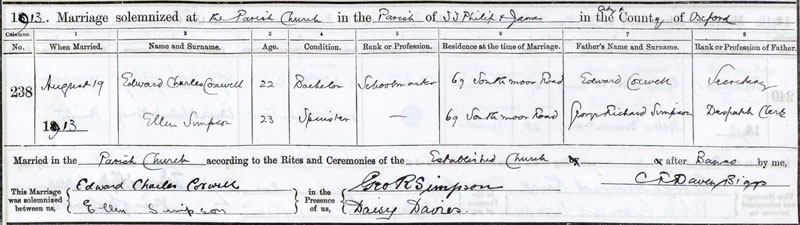 1913. Marriage solemnized at the Parish Church in the Parish of SS Philip & James in the City & County of Oxford
Columns:— 1 2 3 4 5 6 7 8
No. When Married. Name and Surname. Age. Condition. Rank or Profession. Residence at the time of Marriage. Father's Name and Surname. Rank or Profession of Father.
238 August 19 Edward Charles Coxwell 22 Bachelor Schoolmaster 69 Southmoor Road Edward Coxwell Secretary
1913 Ellen Simpson 23 Spinster — 69 Southmoor Road George Richard Simpson Despatch Clerk
Married in the Parish Church according to the Rites and Ceremonies of the Established Church by or after Banns by me,
This Marriage was solemnized between us, Edward Charles Coxwell in the Presence of us, Geo R Simpson C R Davey Biggs
Ellen Simpson Daisy Davies.